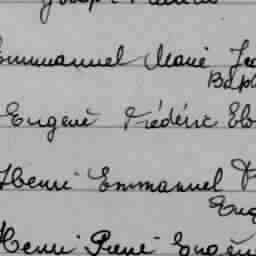 Emmanuel Marie
Bap
Eugène Frédéric Elo
Henri Emmanuel
Eug
Henri René Eugèn